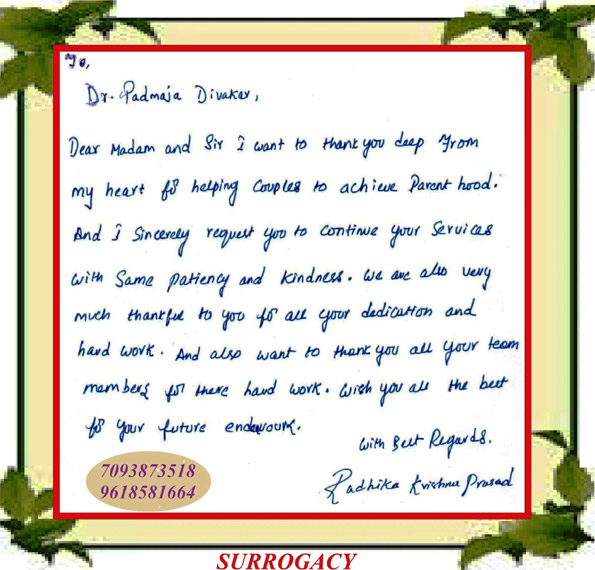 To,
Dr. Padmaja Divakar,
Dear Madam and Sir I want to thank you deep from
my heart for helping Couples to achieve Parent hood.
And I Sincerely request you to continue your Services
with Same patiency and kindness. we are also very
much thankful to you for all your dedication and
hard work. And also want to thank you all your team
members for there hard work. wish you all the best
for your future endevours.
with Best Regards.
Radhika Krishna Prasad
7093873518
9618581664
SURROGACY